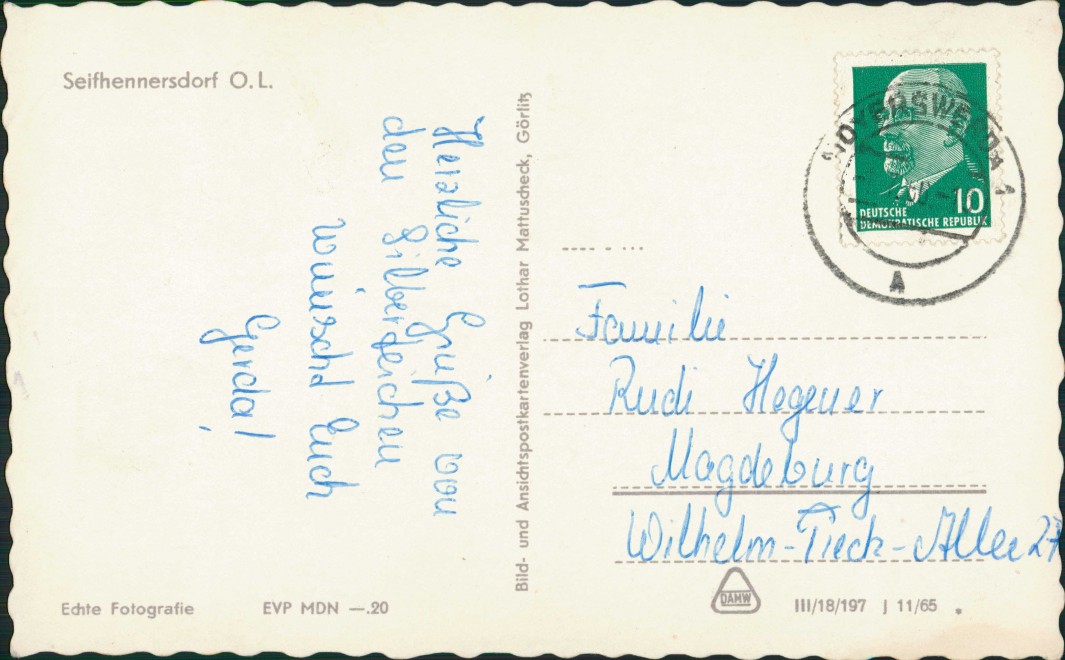 Seifhennersdorf O. L.
Herzliche Grüße von
den Silberteichen
wünscht Euch
Gerda!
Echte Fotografie
EVP MDN —.20
Bild- und Ansichtspostkartenverlag Lothar Mattuscheck, Görlitz
HOYERSWERDA 1
A
10
DEUTSCHE
DEMOKRATISCHE REPUBLIK
Familie
Rudi Hegener
Magdeburg
Wilhelm-Tieck-Allee 27
DAMW
III/18/197 J 11/65